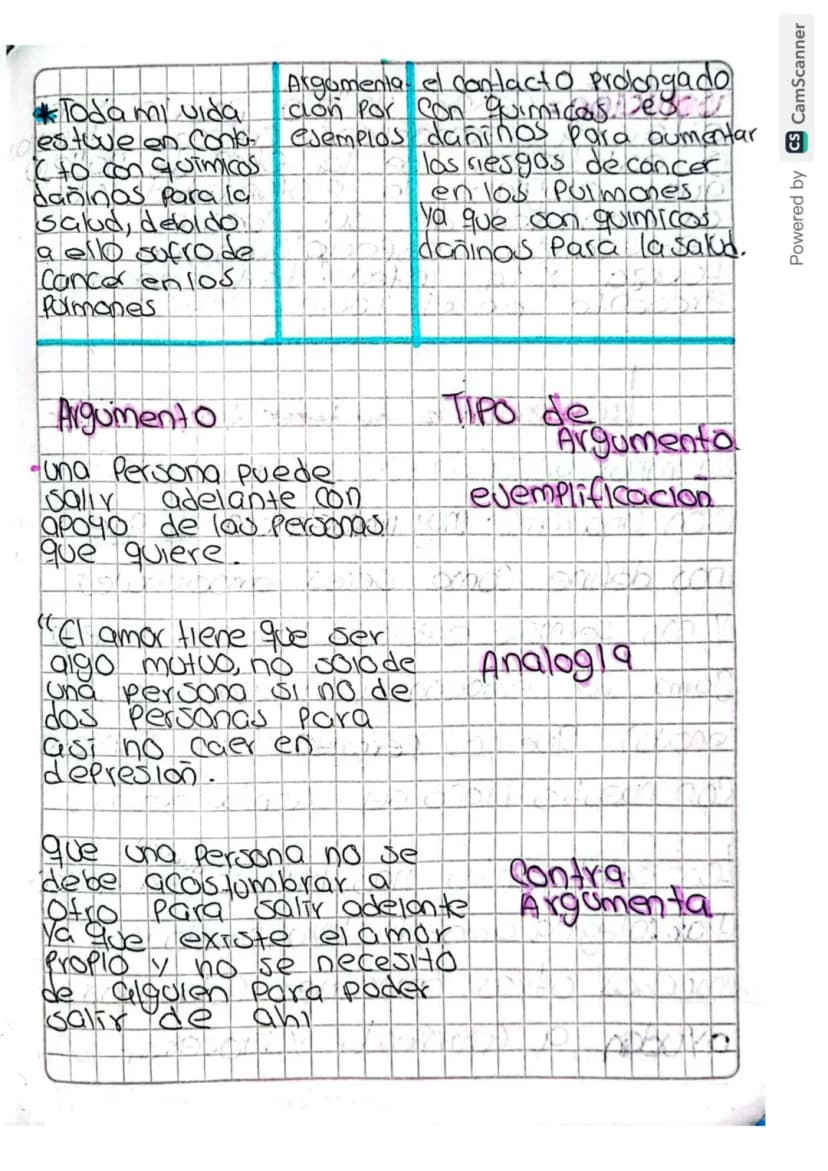 *Toda mi vida
estuve en conta-
cto con químicos
dañinos para la
salud, debido
a ello sufro de
cancer en los
Pulmones
Argumenta
ción por
ejemplos
el contacto prolongado
con químicos es
dañinos para aumentar
los riesgos de cancer
en los pulmones
ya que son químicos
dañinos para la salud.
Argumento
TIPO de
Argumento
una Persona puede
salir adelante con
apoyo de las personas
que quiere.
ejemplificación
"El amor tiene que ser
algo mutuo, no solo de
una persona si no de
dos personas para
asi no caer en
depresion.
Analogía
que una persona no se
debe acostumbrar a
otro para salir adelante
Ya que existe el amor
propio y no se necesita
de alguien para poder
salir de ahi
Contra
Argumenta
Powered by CS CamScanner